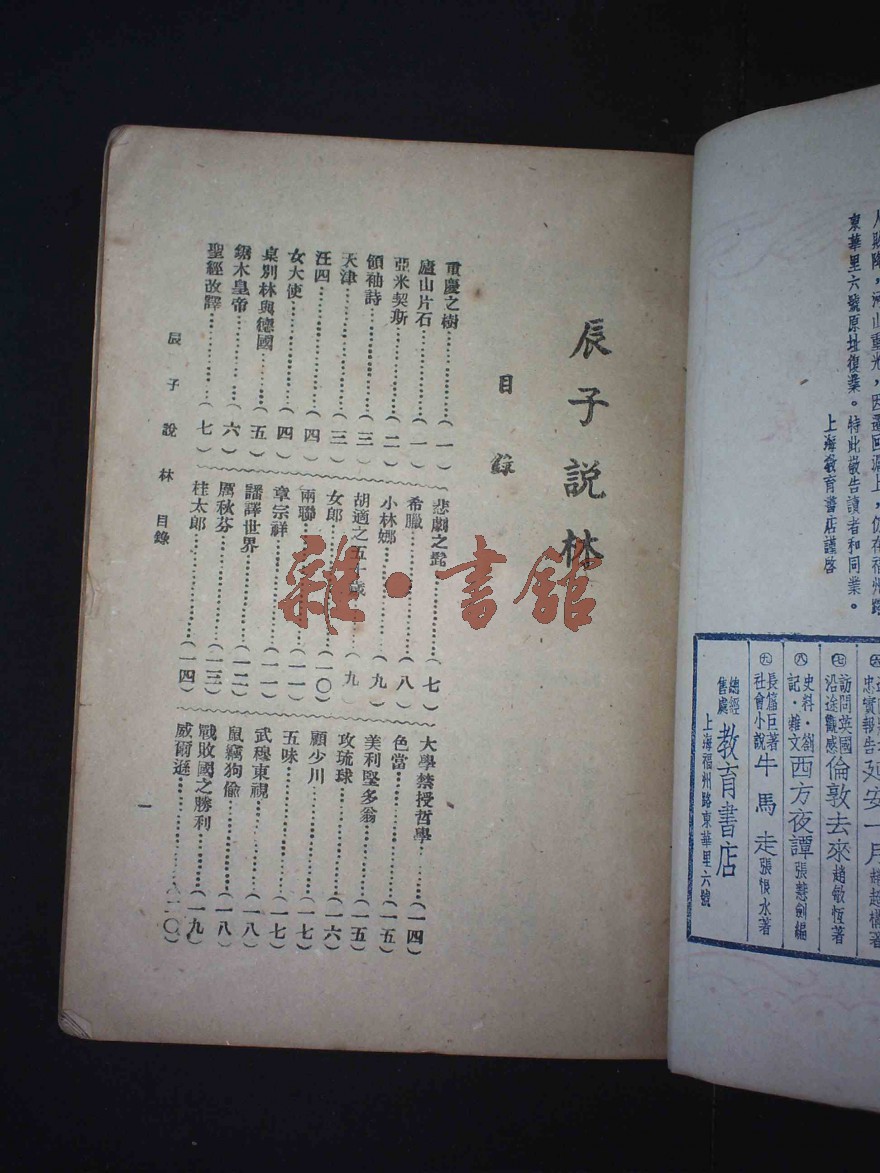 人財陣，河山重光，因遷回滬上，仍在福州路
東華里六號原址復業。特此敬告讀者和同業。
上海教育書店謹啓
忠實報告 延安一月 趙超構著
㊆ 訪問英國沿途觀感 倫敦去來 趙敏恆著
㊇ 史料・劄記・雜文 西方夜譚 張慧劍編
㊈ 長篇巨著社會小說 牛馬走 張恨水著
總經售處 教育書店
上海福州路東華里六號
辰子說林
目錄
重慶之樹………(一)
廬山片石………(一)
亞米契斯………(二)
領袖詩………(三)
天津………(三)
汪四………(四)
女大使………(四)
桌別林與德國………(五)
鋸木皇帝………(六)
聖經改譯………(七)
悲劇之髭………(七)
希臘………(八)
小林娜………(九)
胡適之五十歲………(九)
女郎………(一〇)
兩聯………(一一)
章宗祥………(一一)
譒譯世界………(一二)
厲秋芬………(一三)
桂太郎………(一四)
大學禁授哲學………(一四)
色當………(一五)
美利堅多翁………(一五)
攻琉球………(一六)
顧少川………(一七)
五味………(一七)
武穆東視………(一八)
鼠竊狗偸………(一八)
戰敗國之勝利………(一九)
威爾遜………(二〇)
辰子說林 目錄
一
雜・書館